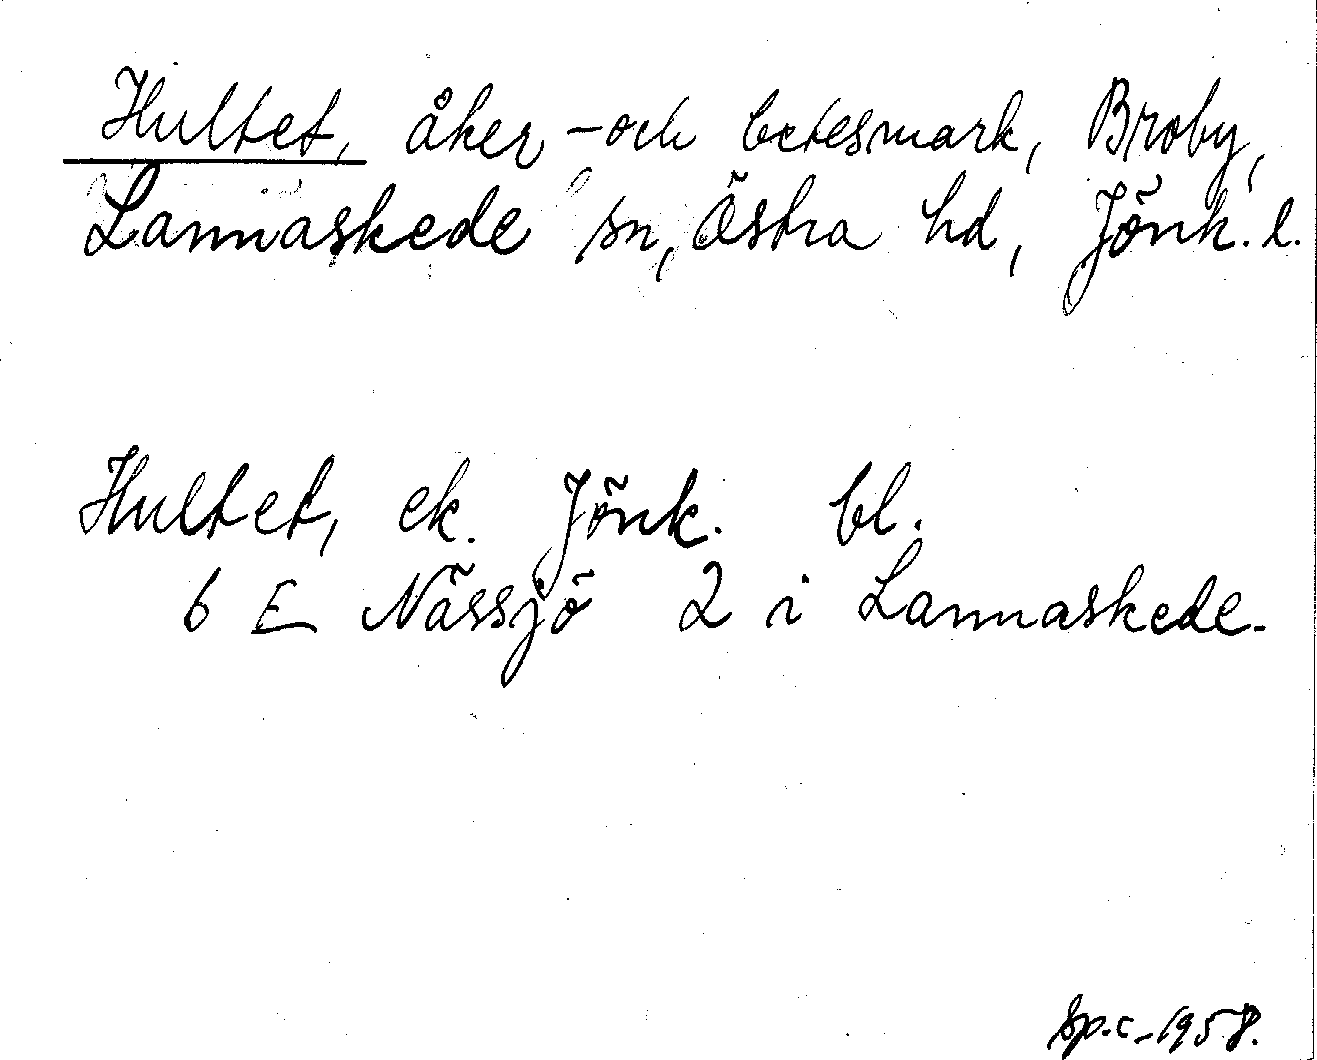 Hultet, åker - och betesmark, Broby,
Lannaskede sn, Östra hd, Jönk. l.
Hultet, ek. Jönk. bl.
6 E Nässjö 2 i Lannaskede.
Sp.c. 1958.